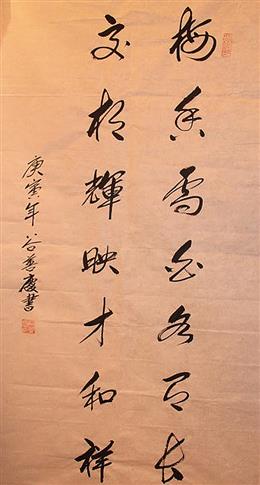 梅香雪白各有长
交相辉映才和祥
庚寅年谷善庆书